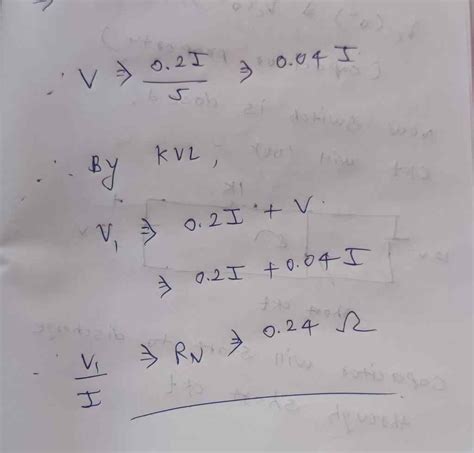 ∴ V ⇒ 0.2I/5 ⇒ 0.04 I
∴ By KVL,
V₁ ⇒ 0.2I + V.
⇒ 0.2I + 0.04 I
∴ V₁/I ⇒ R_N ⇒ 0.24 Ω